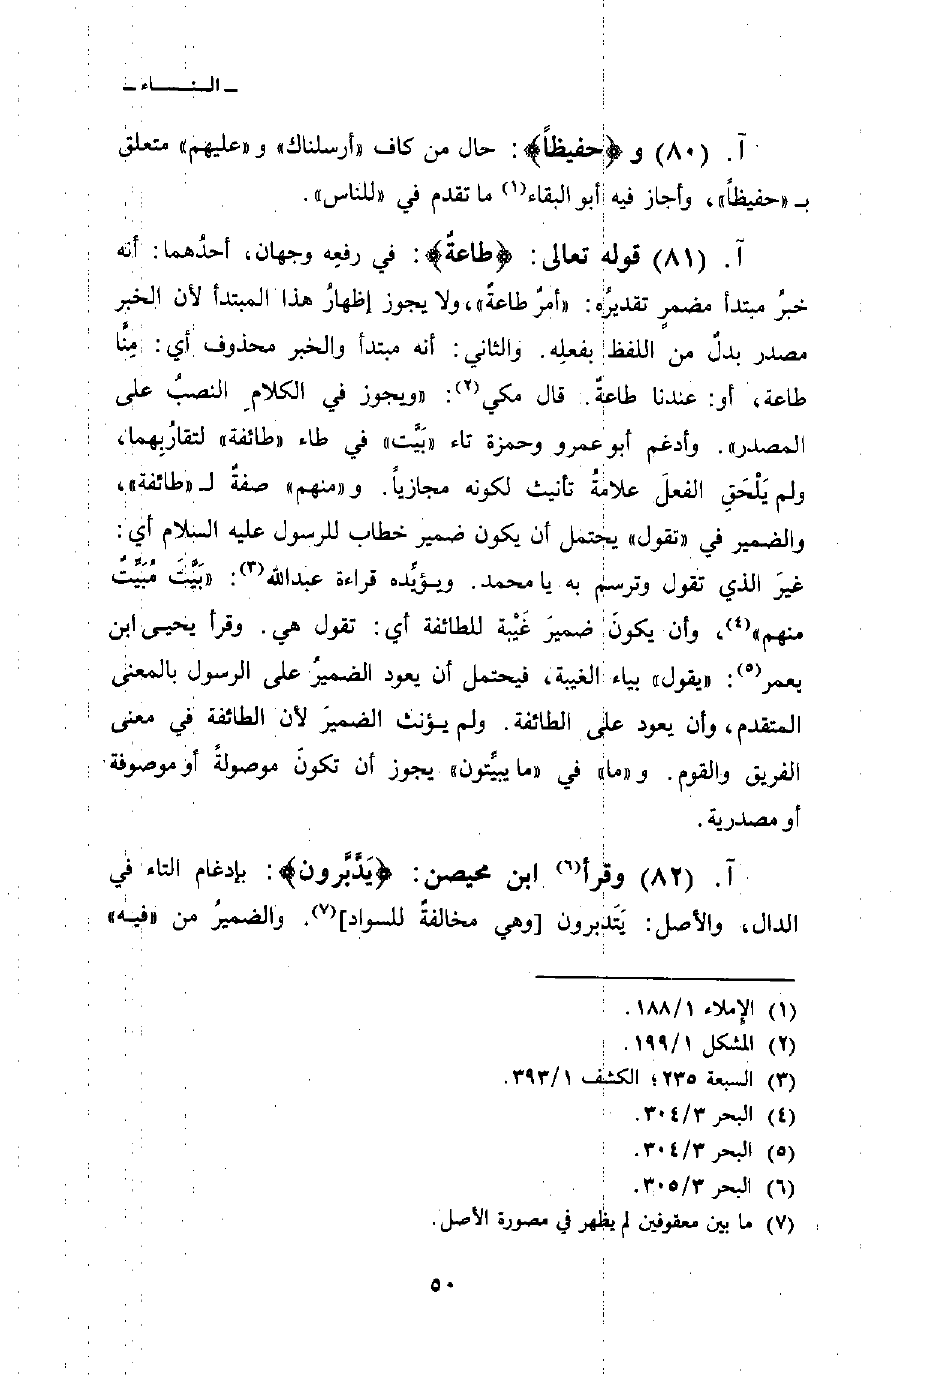 ـ النساء ـ
آ. (٨٠) و ﴿حفيظاً﴾: حال من كاف «أرسلناك» و «عليهم» متعلق
بـ «حفيظاً»، وأجاز فيه أبو البقاء(١) ما تقدم في «للناس».
آ. (٨١) قوله تعالى: ﴿طاعةٌ﴾: في رفعِه وجهان، أحدُهما: أنه
خبرُ مبتدأ مضمرٍ تقديرُه: «أمرُ طاعةٌ»، ولا يجوز إظهارُ هذا المبتدأ لأن الخبر
مصدر بدلٌ من اللفظ بفعلِه. والثاني: أنه مبتدأ والخبر محذوف أي: مِنَّا
طاعة، أو: عندنا طاعةٌ. قال مكي(٢): «ويجوز في الكلام النصبُ على
المصدر». وأدغم أبو عمرو وحمزة تاء «بَيَّت» في طاء «طائفة» لتقارُبِهما،
ولم يَلْحَقِ الفعلَ علامةُ تأنيث لكونه مجازياً. و «منهم» صفةٌ لـ «طائفة»،
والضمير في «تقول» يحتمل أن يكون ضمير خطاب للرسول عليه السلام أي:
غيرَ الذي تقول وترسم به يا محمد. ويؤيِّده قراءة عبدالله(٣): «بَيَّتَ مُبَيِّتٌ
منهم»(٤)، وأن يكونَ ضميرَ غَيْبة للطائفة أي: تقول هي. وقرأ يحيى ابن
يعمر(٥): «يقول» بياء الغيبة، فيحتمل أن يعود الضميرُ على الرسول بالمعنى
المتقدم، وأن يعود على الطائفة. ولم يؤنث الضميرَ لأن الطائفة في معنى
الفريق والقوم. و «ما» في «ما يبيِّتون» يجوز أن تكونَ موصولةً أو موصوفة
أو مصدرية.
آ. (٨٢) وقرأ(٦) ابن محيصن: ﴿يَدَّبَّرون﴾: بإدغام التاء في
الدال، والأصل: يَتَدبرون [وهي مخالفةٌ للسواد](٧). والضميرُ من «فيه»
(١) الإملاء ١/١٨٨.
(٢) المشكل ١/١٩٩.
(٣) السبعة ٢٣٥؛ الكشف ١/٣٩٣.
(٤) البحر ٣/٣٠٤.
(٥) البحر ٣/٣٠٤.
(٦) البحر ٣/٣٠٥.
(٧) ما بين معقوفين لم يظهر في مصورة الأصل.
٥٠